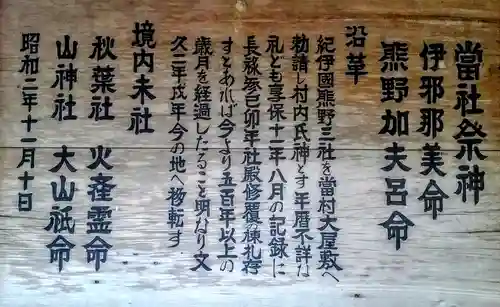 當社祭神
伊邪那美命
熊野加夫呂命
沿革
紀伊國熊野三社を當村大屋敷へ
勅請し村内氏神とす年暦不詳な
礼ども享保十二年八月の記録に
長祿参己卯年社殿修覆の棟札存
すとあれば今より五百年以上の
歳月を経過したること明なり文
久二年戌年今の地へ移転す
境内末社
秋葉社 火産霊命
山神社 大山祇命
昭和二年十一月十日